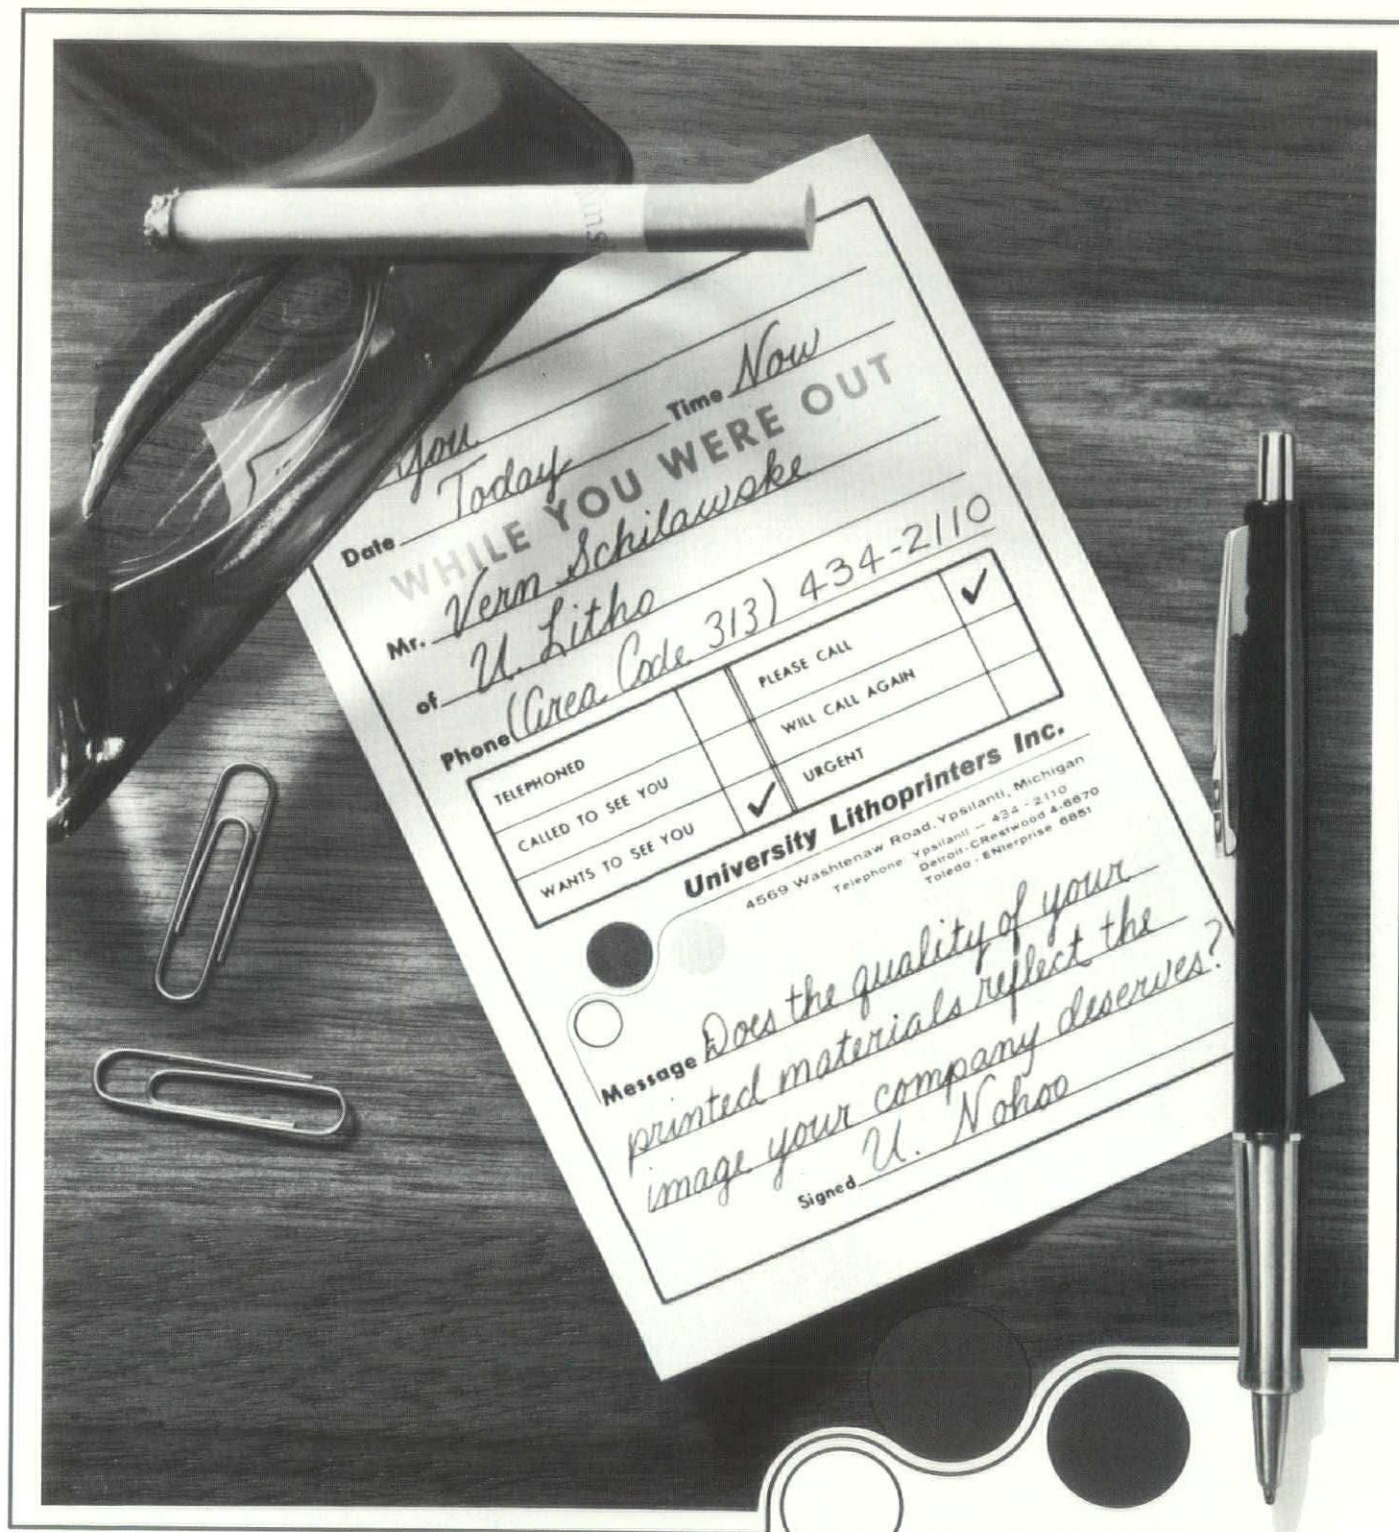 You
Date Today Time Now
WHILE YOU WERE OUT
Mr. Vern Schilawske
of U. Litho
Phone (Area Code 313) 434-2110
TELEPHONED
CALLED TO SEE YOU
WANTS TO SEE YOU ✓
PLEASE CALL ✓
WILL CALL AGAIN
URGENT
University Lithoprinters Inc.
4569 Washtenaw Road, Ypsilanti, Michigan
Telephone: Ypsilanti — 434-2110
Detroit-CRestwood 4-6670
Toledo - ENterprise 6651
Message Does the quality of your
printed materials reflect the
image your company deserves?
Signed U. Nohoo